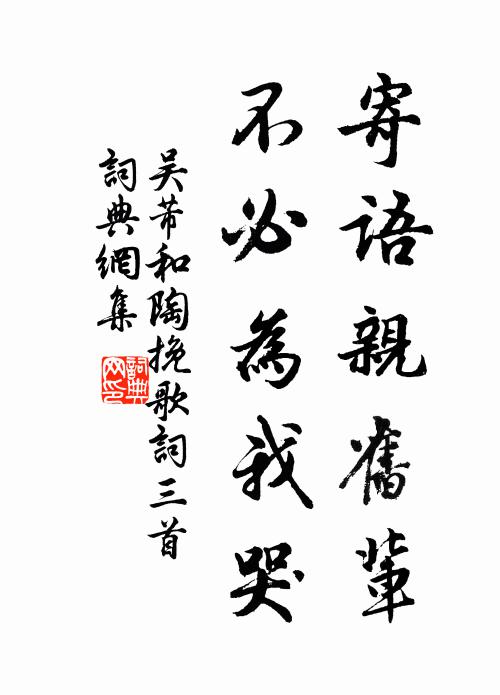 寄語親舊輩
不必為我哭
吳芾和陶挽歌詞三首
詞典網集
詞典
网印